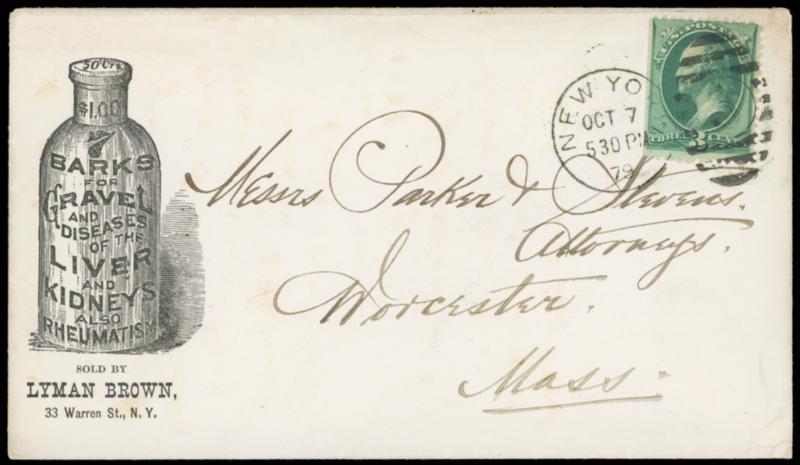 50 Cts
$1.00
7
BARKS
FOR
GRAVEL
AND
DISEASES
OF THE
LIVER
AND
KIDNEYS
ALSO
RHEUMATISM
SOLD BY
LYMAN BROWN,
33 Warren St., N. Y.
NEW YO
OCT 7
530 PM
79
THREE CEN
3
Messrs Parker & Stevens.
Attorneys.
Worcester.
Mass.